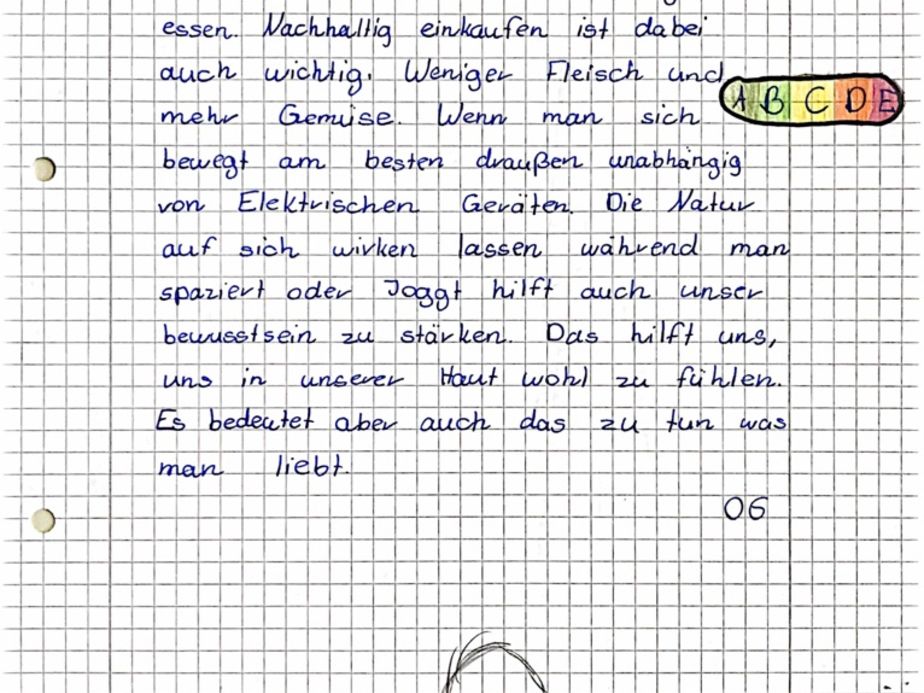 essen. Nachhaltig einkaufen ist dabei
auch wichtig. Weniger Fleisch und
A B C D E
mehr Gemüse. Wenn man sich
bewegt am besten draußen unabhängig
von Elektrischen Geräten. Die Natur
auf sich wirken lassen während man
spaziert oder Joggt hilft auch unser
bewusstsein zu stärken. Das hilft uns,
uns in unserer Haut wohl zu fühlen.
Es bedeutet aber auch das zu tun was
man liebt.
06